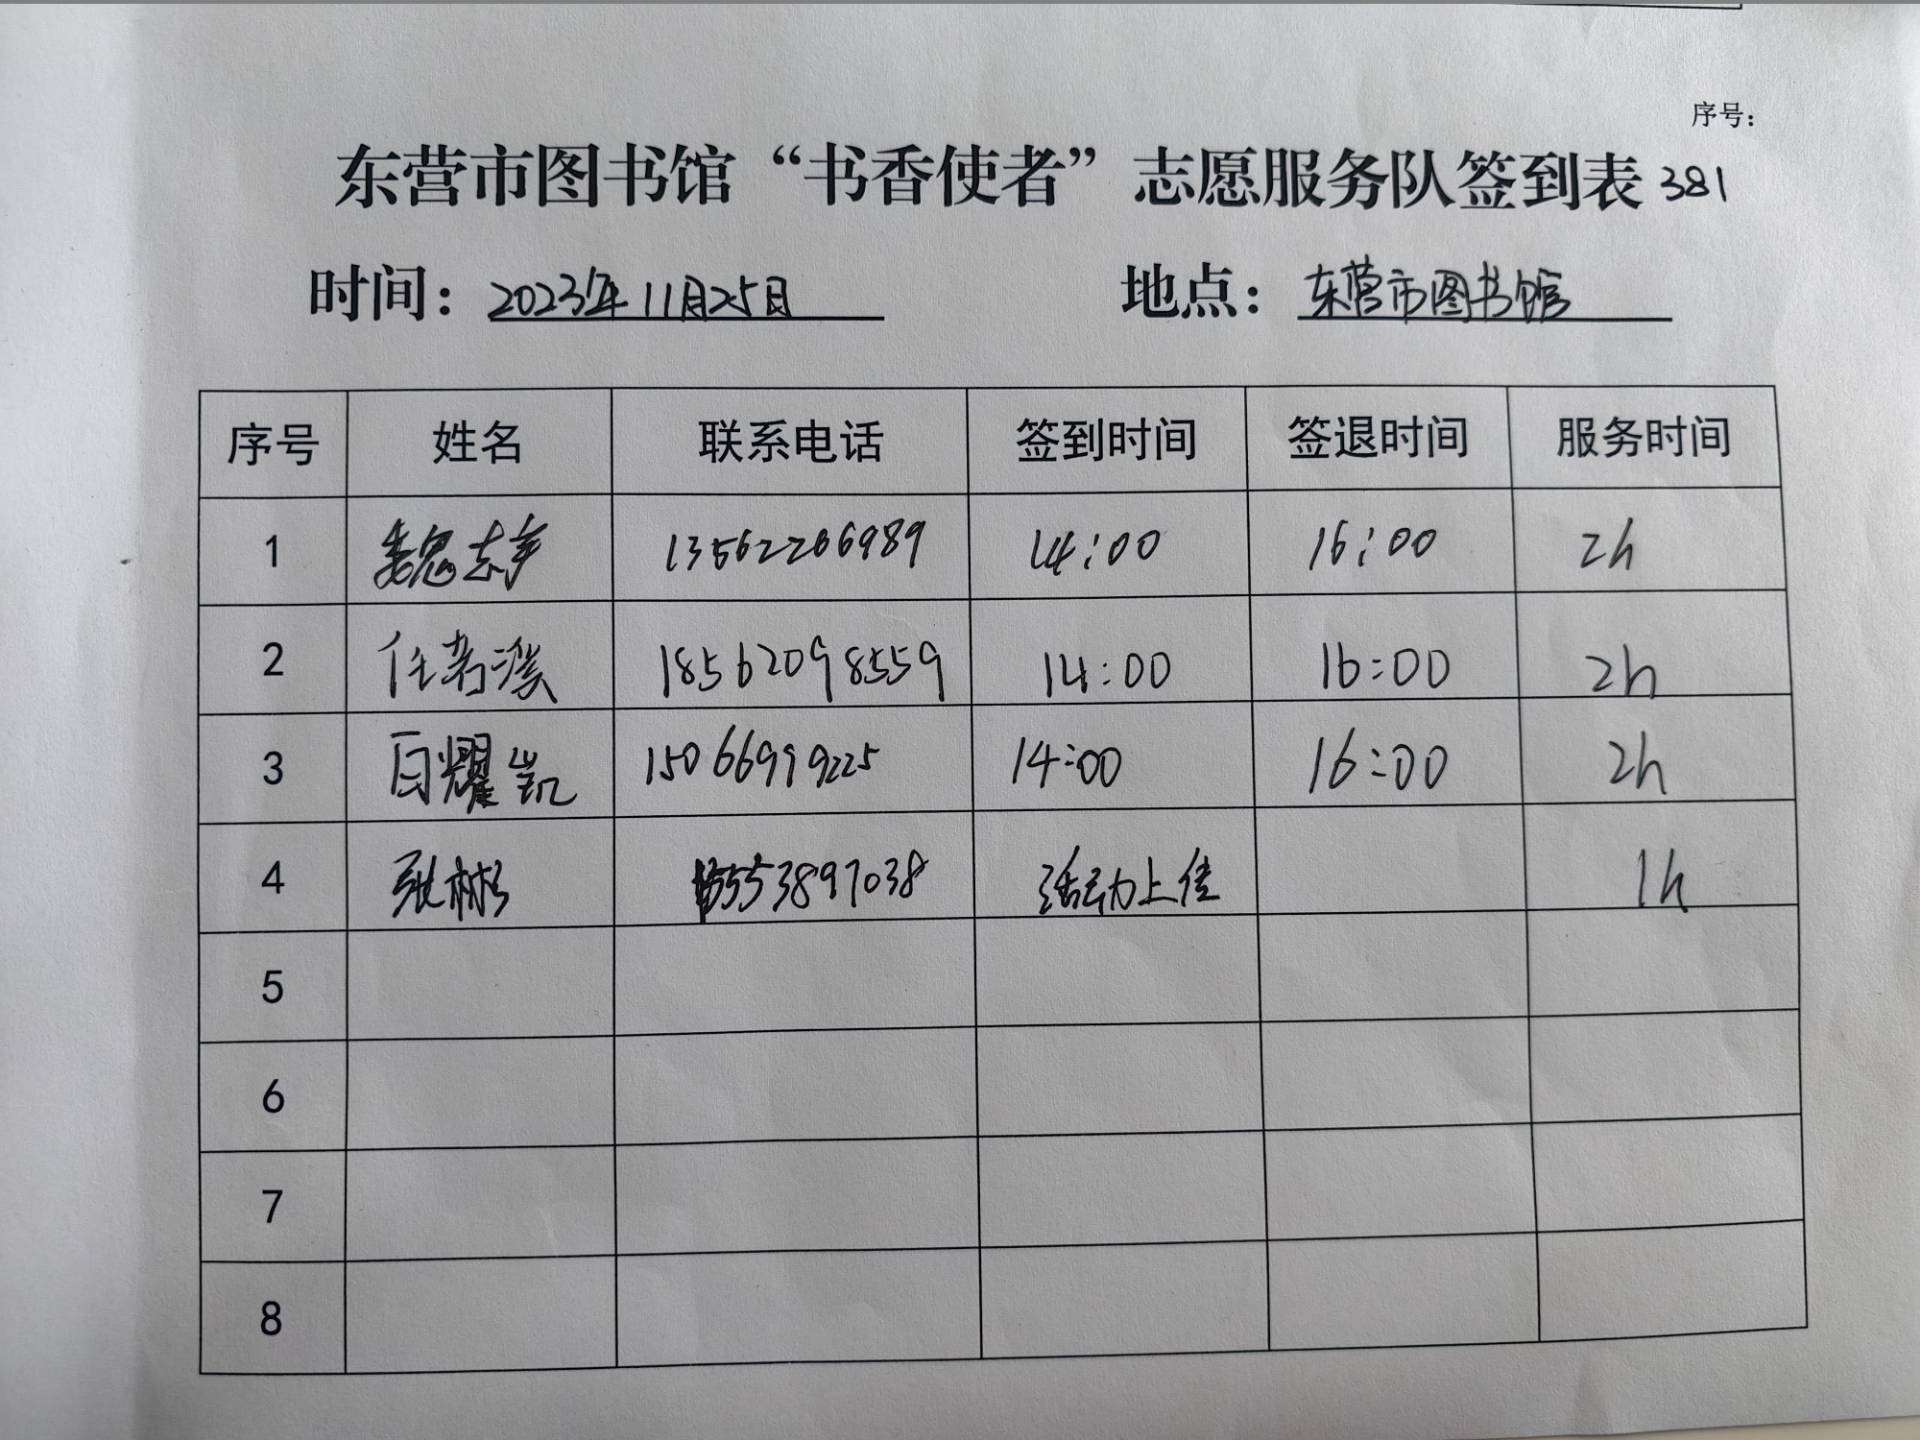 序号：
东营市图书馆“书香使者”志愿服务队签到表 381
时间：2023年11月25日 地点：东营市图书馆
序号 姓名 联系电话 签到时间 签退时间 服务时间
1 魏志宇 13562266989 14:00 16:00 2h
2 任 18562098559 14:00 16:00 2h
3 白耀凯 15066999225 14:00 16:00 2h
4 张彬 15553897038 活动上传 1h
5
6
7
8